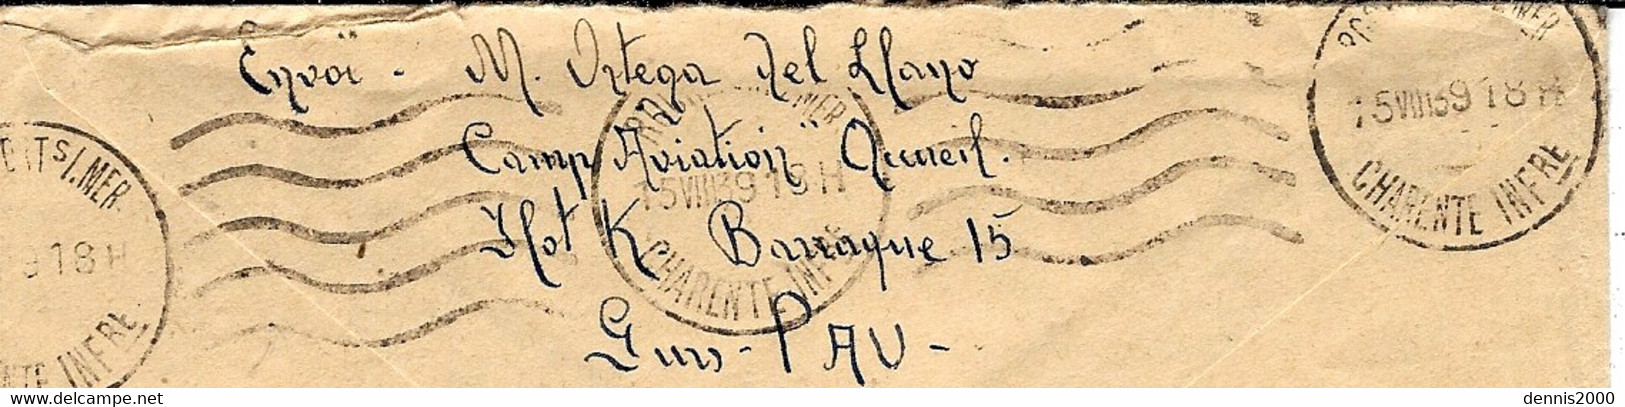 Envoï - M. Ortega del Llano
Camp Aviation Acueil.
Ilot K Barraque 15
Gurs - PAU -
S/.MER.
9 18 H
INFRE
MER
15 VIII 39 18 H
CHARENTE INFRE
MER
15 VIII 39 18 H
CHARENTE INFRE
delcampe.net
dennis2000